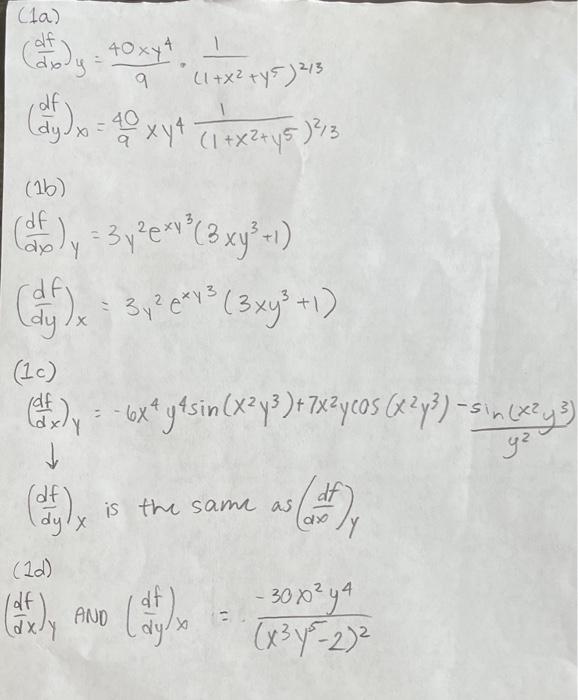 (1a)
(df/dx)y = 40xy⁴/9 · 1/(1+x²+y⁵)^2/3
(df/dy)x = 40/9 xy⁴ 1/(1+x²+y⁵)^2/3
(1b)
(df/dx)y = 3y²e^xy³(3xy³+1)
(df/dy)x = 3y²e^xy³(3xy³+1)
(1c)
(df/dx)y = -6x⁴y⁴sin(x²y³)+7x²ycos(x²y³) - sin(x²y³)/y²
↓
(df/dy)x is the same as (df/dx)y
(1d)
(df/dx)y AND (df/dy)x = -30x²y⁴/(x³y⁵-2)²